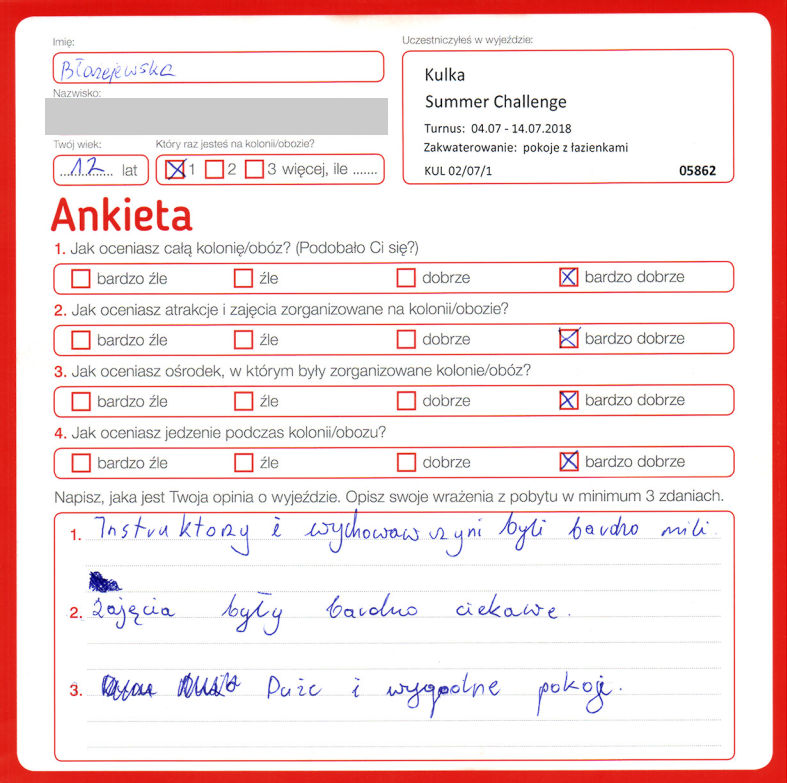 Imię:
Błażejewska
Nazwisko:
Twój wiek:
12 lat
Który raz jesteś na kolonii/obozie?
1 2 3 więcej, ile .......
Uczestniczyłeś w wyjeździe:
Kulka
Summer Challenge
Turnus: 04.07 - 14.07.2018
Zakwaterowanie: pokoje z łazienkami
KUL 02/07/1 05862
Ankieta
1. Jak oceniasz całą kolonię/obóz? (Podobało Ci się?)
bardzo źle źle dobrze bardzo dobrze
2. Jak oceniasz atrakcje i zajęcia zorganizowane na kolonii/obozie?
bardzo źle źle dobrze bardzo dobrze
3. Jak oceniasz ośrodek, w którym były zorganizowane kolonie/obóz?
bardzo źle źle dobrze bardzo dobrze
4. Jak oceniasz jedzenie podczas kolonii/obozu?
bardzo źle źle dobrze bardzo dobrze
Napisz, jaka jest Twoja opinia o wyjeździe. Opisz swoje wrażenia z pobytu w minimum 3 zdaniach.
1. Instruktorzy i wychowawczyni byli bardzo mili.
2. Zajęcia były bardzo ciekawe.
3. Duże i wygodne pokoje.